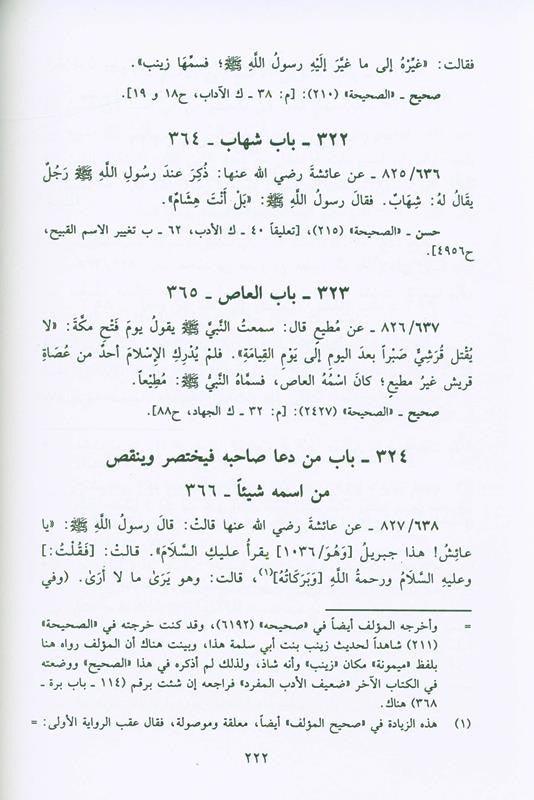 فقالت: «غيِّرْهُ إلى ما غيَّرَ إلَيْهِ رسولُ اللَّهِ ﷺ؛ فسمِّهَا زينب».
صحيح ـ «الصحيحة» (٢١٠): [م: ٣٨ ـ ك الآداب، ح١٨ و ١٩].
٣٢٢ ـ باب شهاب ـ ٣٦٤
٨٢٥/٦٣٦ ـ عن عائشةَ رضي الله عنها: ذُكِرَ عندَ رسُولِ اللَّهِ ﷺ رَجُلٌ
يقَالُ لهُ: شِهَابٌ. فقالَ رسولُ اللَّهِ ﷺ: «بَلْ أَنْتَ هِشَامٌ».
حسن ـ «الصحيحة» (٢١٥)، [تعليقاً ٤٠ ـ ك الأدب، ٦٢ ـ ب تغيير الاسم القبيح،
ح٤٩٥٦].
٣٢٣ ـ باب العاص ـ ٣٦٥
٨٢٦/٦٣٧ ـ عن مُطيعٍ قال: سمعتُ النَّبيَّ ﷺ يقولُ يومَ فَتْحِ مكَّةَ: «لا
يُقْتل قُرَشِيٌّ صَبْراً بعدَ اليومِ إلى يَوْمِ القِيامَةِ». فلمْ يُدْرِكِ الإِسْلامَ أحدٌ من عُصَاةِ
قريش غيرُ مطيعٍ؛ كانَ اسْمُهُ العاص، فسمَّاهُ النَّبيُّ ﷺ: مُطِيْعاً.
صحيح ـ «الصحيحة» (٢٤٢٧): [م: ٣٢ ـ ك الجهاد، ح٨٨].
٣٢٤ ـ باب من دعا صاحبه فيختصر وينقص
من اسمه شيئاً ـ ٣٦٦
٨٢٧/٦٣٨ ـ عن عائشةَ رضي الله عنها قالتْ: قالَ رسولُ اللَّهِ ﷺ: «يا
عائِشُ! هذا جبريلُ [وَهُوَ/١٠٣٦] يقرأُ عليكِ السَّلامَ». قالتْ: [فَقُلْتُ:]
وعليهِ السَّلامُ ورحمةُ اللَّهِ [وَبَرَكَاتُهُ](١)، قالت: وهو يَرَىٰ ما لا أَرَىٰ. (وفي
= وأخرجه المؤلف أيضاً في «صحيحه» (٦١٩٢)، وقد كنت خرجته في «الصحيحة»
(٢١١) شاهداً لحديث زينب بنت أبي سلمة هذا، وبينت هناك أن المؤلف رواه هنا
بلفظ «ميمونة» مكان «زينب» وأنه شاذ، ولذلك لم أذكره في هذا «الصحيح» ووضعته
في الكتاب الآخر «ضعيف الأدب المفرد» فراجعه إن شئت برقم (١١٤ ـ باب برة ـ
٣٦٨) هناك.
(١) هذه الزيادة في «صحيح المؤلف» أيضاً، معلقة وموصولة، فقال عقب الرواية الأولى: =
٢٢٢